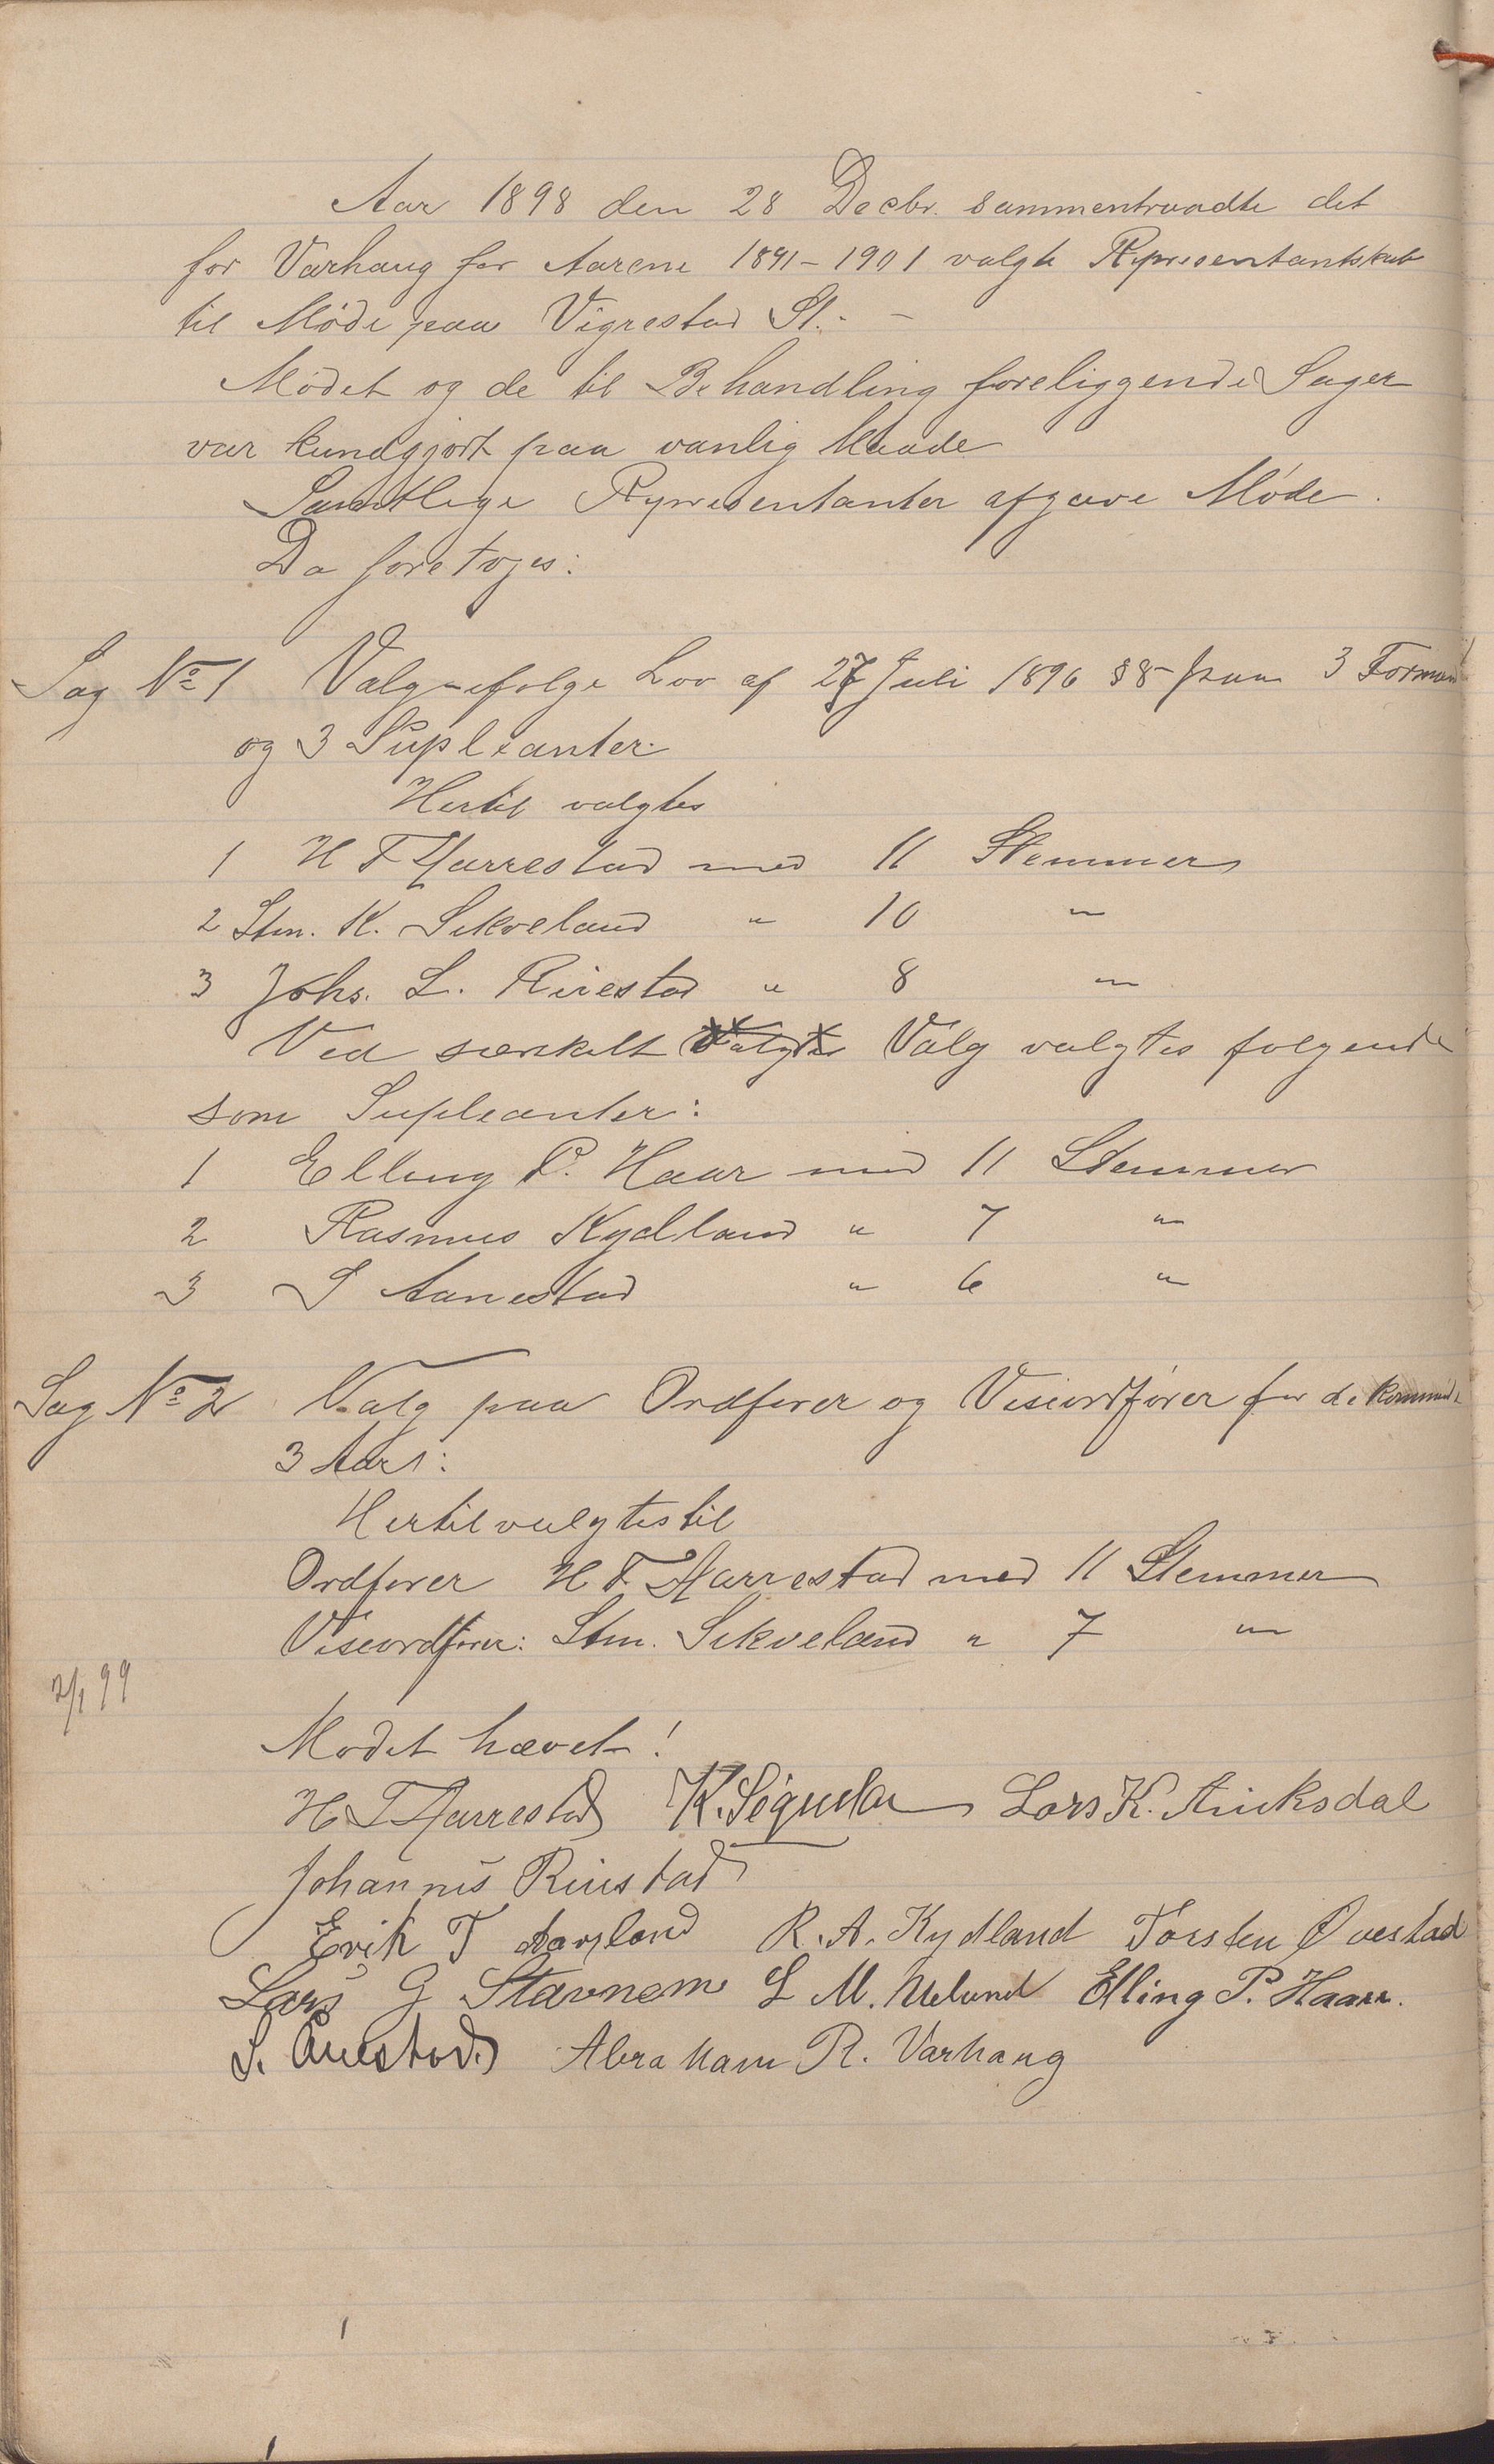 Aar 1898 den 28 Decbr. sammentraadte det
for Varhaug for Aarene 1891-1901 valgte Representantskab
til Møde paa Vigrestad St. -
Mødet og de til Behandling foreliggende Sager
var kundgjort paa vanlig Maade
Samtlige Representanter afgave Møde.
Da foretoges:
Sag No 1 Valg ifølge Lov af 27 Juli 1896 § 8 paa 3 Formænd
og 3 Supleanter.
Hertil valgtes
1 H T Harrestad med 11 Stemmer
2 Stm. K. Sikveland " 10 "
3 Johs. L. Risestad " 8 "
Ved særskilt Valg valgtes følgende
som Supleanter:
1 Elling P. Haar med 11 Stemmer
2 Rasmus Kydland " 7 "
3 S Aanestad " 6 "
Sag No 2 Valg paa Ordfører og Viseordfører for de kommende
3 Aar:
Hertil valgtes til
Ordfører H T. Harrestad med 11 Stemmer
Viseordfører: Stm. Sikveland " 7 "
2/1 99
Mødet hævet!
H T Harrestad K. Lars K.
Johannes
Erik T R. A. Kydland Torsten
Lars G Stavnem L M. Elling P. Haar.
S. Abraham R. Varhaug